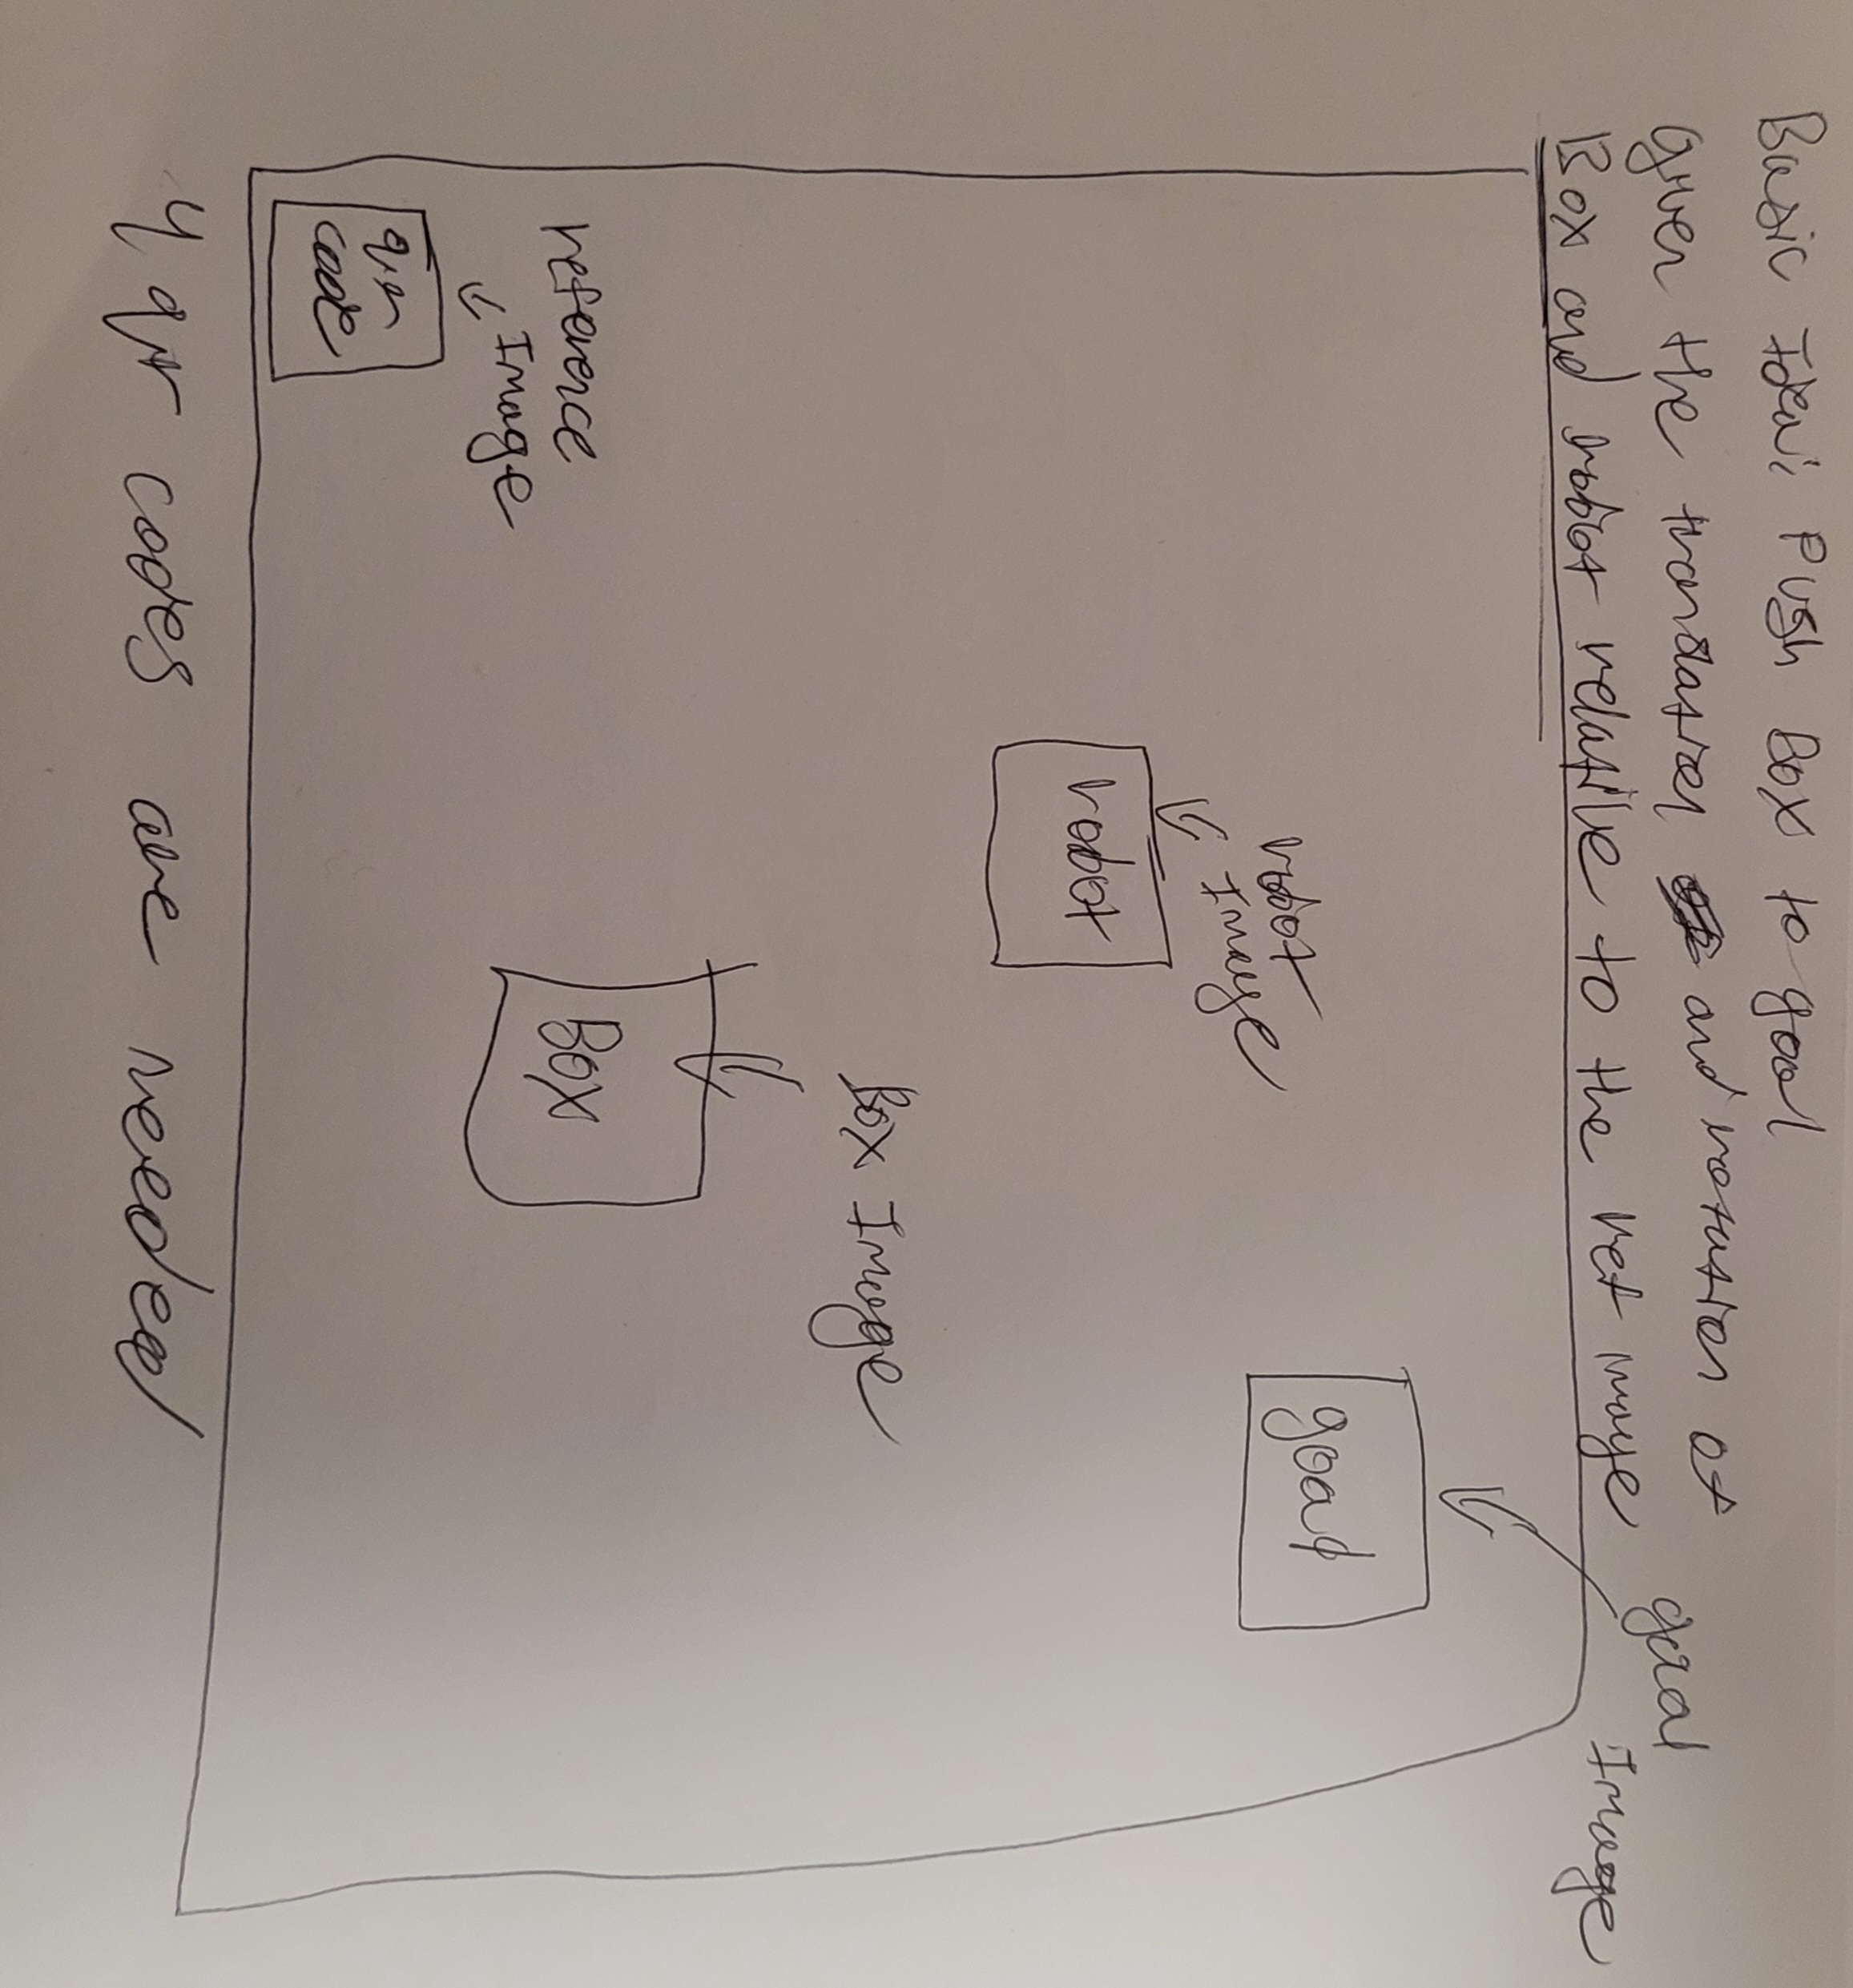 Basic Idea: Push Box to goal
Given the translation and rotation of
Box and robot relative to the ref image
goal
Image
robot
Image
goal
robot
Box Image
reference
Image
Box
qr
code
4 qr codes are needed